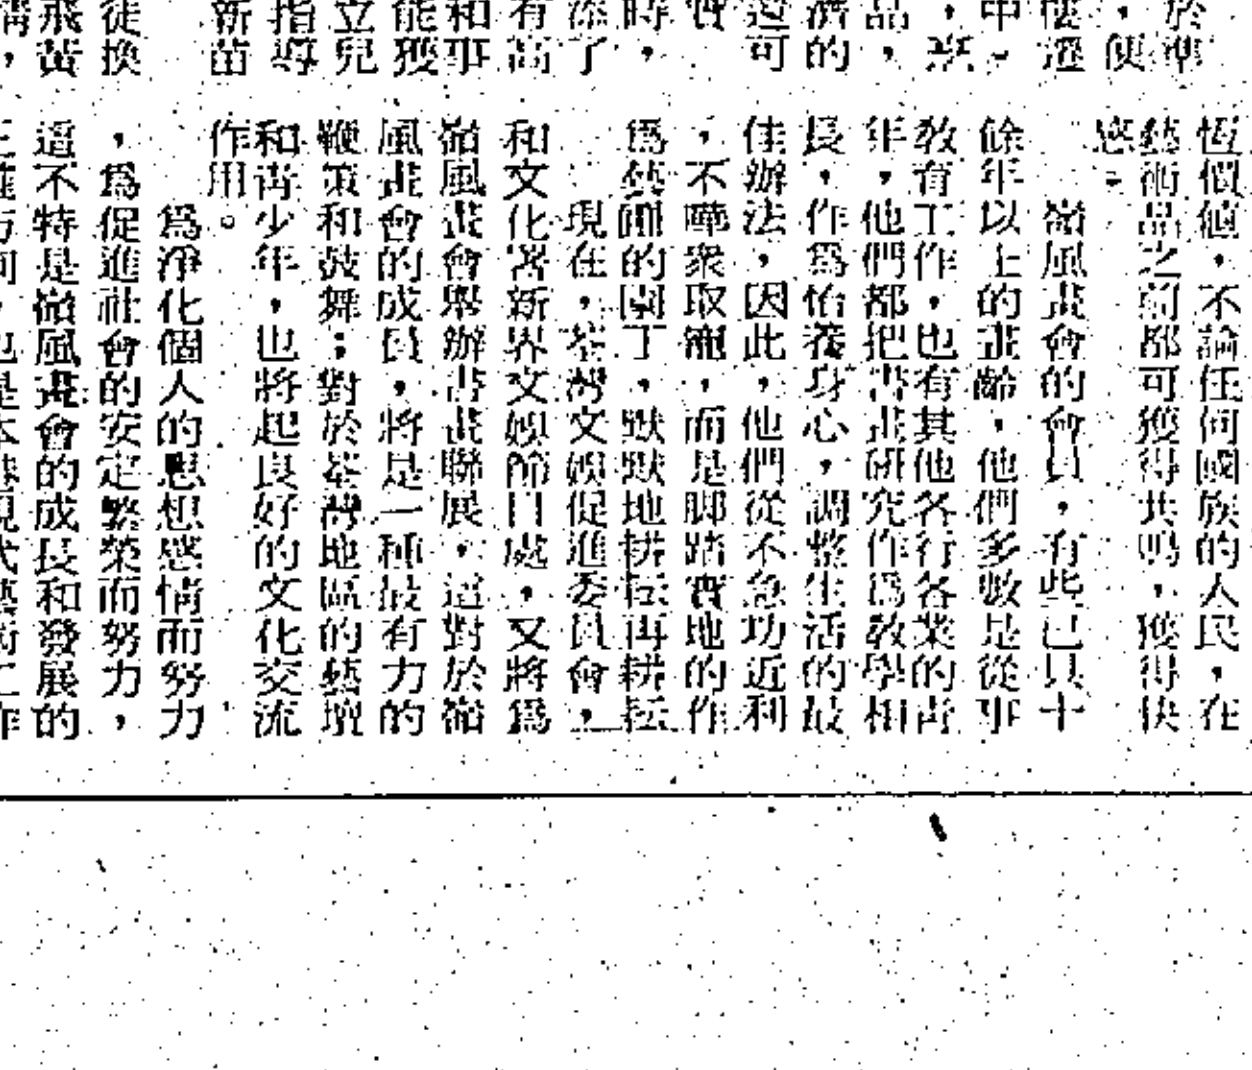 於準
，便
樓溼
中。
，
品，
濟的
這可
實
時，
添了
有高
和事
能獲
立兒
指導
新苗
徒換
飛黃
情，
恆價值，不論任何國族的人民，在
藝術品之前都可獲得共鳴，獲得快
感。
嶺風畫會的會員，有些已具十
餘年以上的畫齡，他們多數是從事
教育工作，也有其他各行各業的青
年，他們都把書畫研究作爲教學相
長，作爲怡養身心，調整生活的最
佳辦法，因此，他們從不急功近利
，不嘩衆取寵，而是脚踏實地的作
爲藝圃的園丁，默默地耕耘再耕耘
現在，荃灣文娛促進委員會，
和文化署新界文娛節目處，又將爲
嶺風畫會舉辦書畫聯展，這對於嶺
風畫會的成員，將是一種最有力的
鞭策和鼓舞；對於荃灣地區的藝壇
和青少年，也將起良好的文化交流
作用。
爲淨化個人的思想感情而努力
，爲促進社會的安定繁榮而努力，
這不特是嶺風畫會的成長和發展的
方向，也是本港現代藝術工作